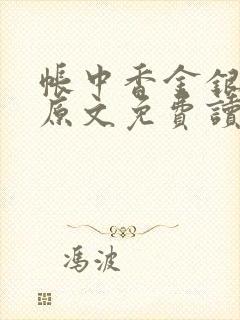 帳中香金銀
原文免費讀
馮波